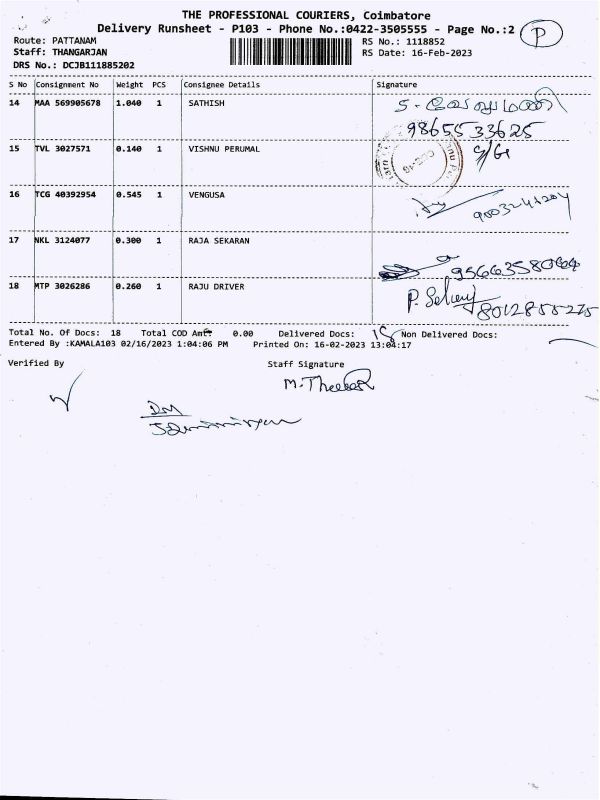 THE PROFESSIONAL COURIERS, Coimbatore
Delivery Runsheet - P103 - Phone No.:0422-3505555 - Page No.:2 P
Route: PATTANAM RS No.: 1118852
Staff: THANGARJAN RS Date: 16-Feb-2023
DRS No.: DCJB111885202
S No Consignment No Weight PCS Consignee Details Signature
14 MAA 569905678 1.040 1 SATHISH
9865533625
15 TVL 3027571 0.140 1 VISHNU PERUMAL
16 TCG 40392954 0.545 1 VENGUSA
17 NKL 3124077 0.300 1 RAJA SEKARAN
9566358064
18 MTP 3026286 0.260 1 RAJU DRIVER
8012855225
Total No. Of Docs: 18 Total COD Amt 0.00 Delivered Docs: 18 Non Delivered Docs:
Entered By :KAMALA103 02/16/2023 1:04:06 PM Printed On: 16-02-2023 13:04:17
Verified By Staff Signature